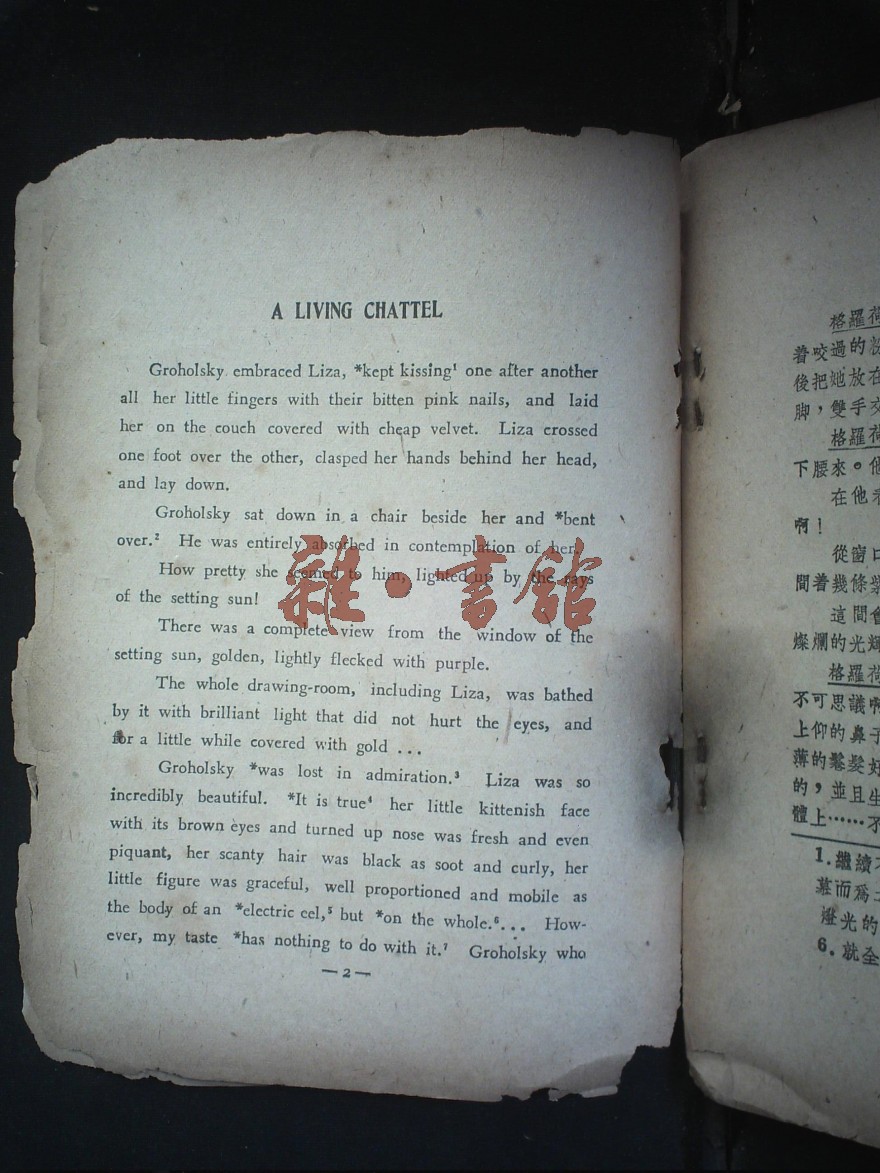 A LIVING CHATTEL
Groholsky embraced Liza, *kept kissing¹ one after another
all her little fingers with their bitten pink nails, and laid
her on the couch covered with cheap velvet. Liza crossed
one foot over the other, clasped her hands behind her head,
and lay down.
Groholsky sat down in a chair beside her and *bent
over.² He was entirely absorbed in contemplation of her.
How pretty she seemed to him, lighted up by the rays
of the setting sun!
There was a complete view from the window of the
setting sun, golden, lightly flecked with purple.
The whole drawing-room, including Liza, was bathed
by it with brilliant light that did not hurt the eyes, and
for a little while covered with gold ...
Groholsky *was lost in admiration.³ Liza was so
incredibly beautiful. *It is true⁴ her little kittenish face
with its brown eyes and turned up nose was fresh and even
piquant, her scanty hair was black as soot and curly, her
little figure was graceful, well proportioned and mobile as
the body of an *electric eel,⁵ but *on the whole.⁶... How-
ever, my taste *has nothing to do with it.⁷ Groholsky who
—2—
雜·書館
格羅荷
着咬過的粉
後把她放在
脚，雙手交
格羅荷
下腰來。他
在他看
啊！
從窗口
間着幾條紫
這間會
燦爛的光輝
格羅荷
不可思議啊
上仰的鼻子
薄的鬈髮好
的，並且生
體上……不
1.繼續不
幕而爲主
燈光的
6.就全